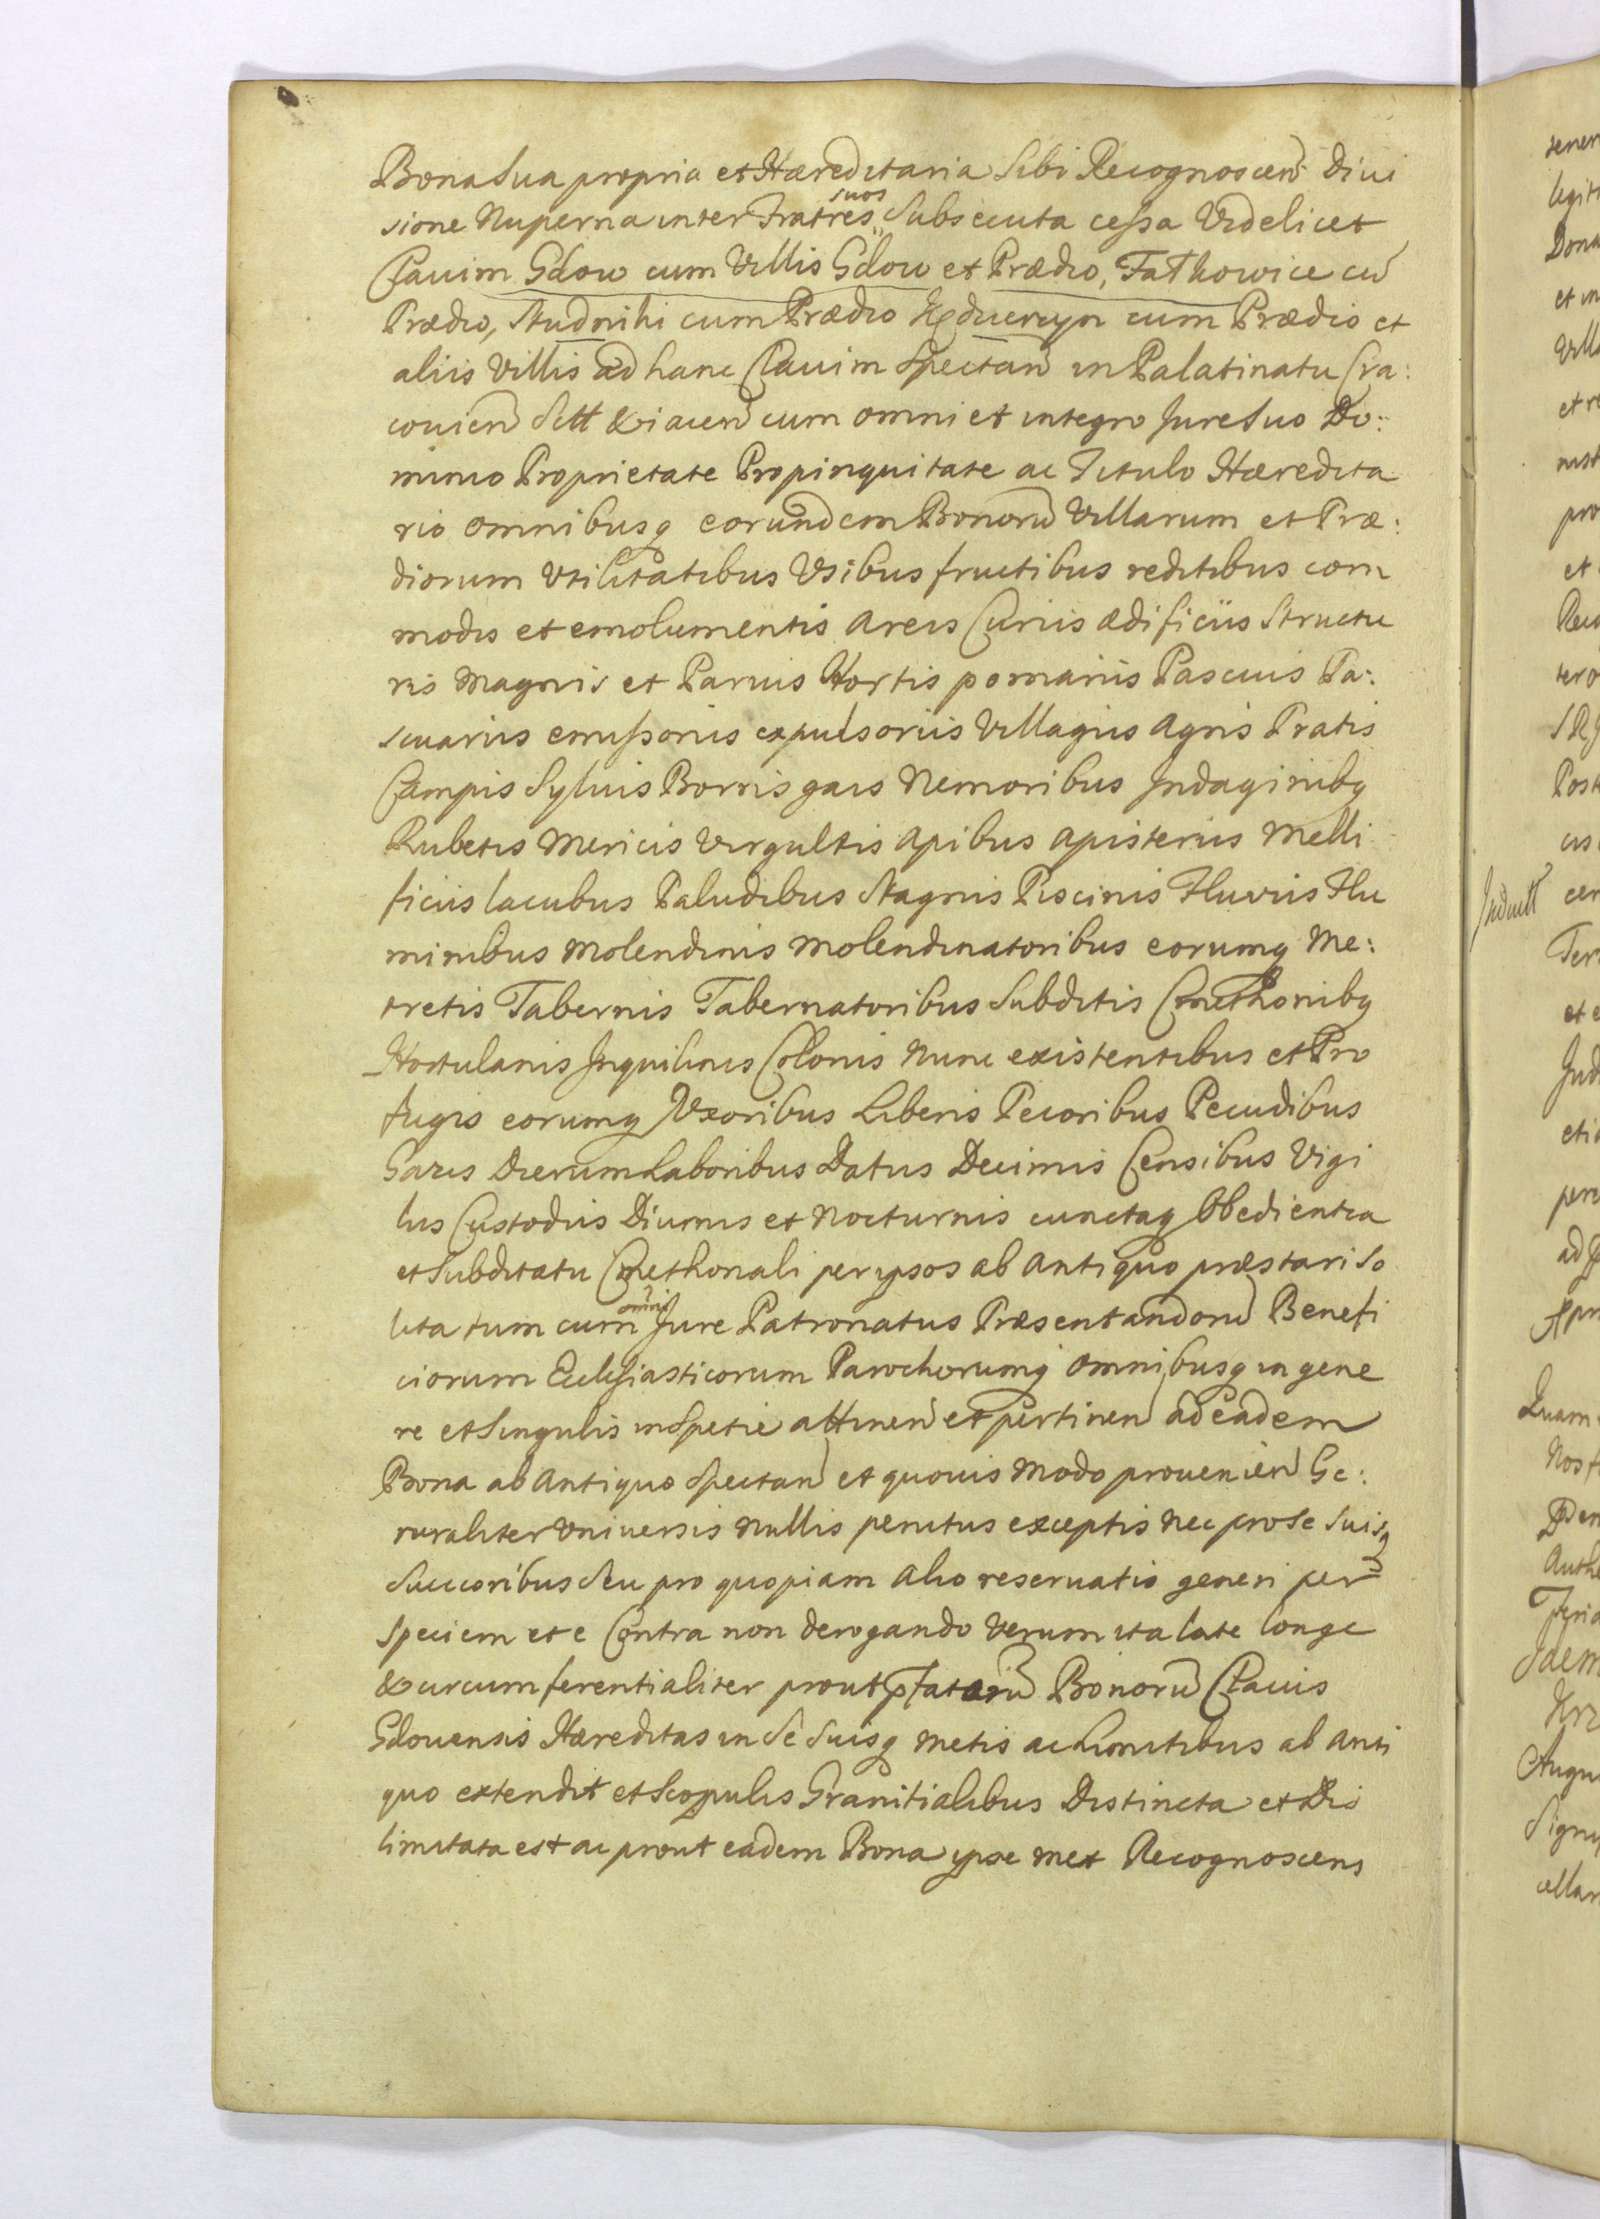 Bona sua propria et Hæreditaria sibi Recognoscen Divi
sione Nuperna inter Fratres suos subsecuta cessa Videlicet
Clavim Gdow cum Villis Gdow et Prædio, Fałkowice cū
Prædio, Studniki cum Prædio cum Prædio et
aliis Villis ad hanc Clavim spectan in Palatinatu Cra:
covien Sitt & iacen cum omni et integro Jure suo Do:
minio Proprietate Propinquitate ac Titulo Hæredita
rio omnibusq eorundem Bonorū Villarum et Præ:
diorum Vtilitatibus Vsibus fructibus reditibus com
modis et emolumentis Areis Curiis ædificiis Structu
ris Magnis et Parvis Hortis pomariis Pascuis Pa:
scuariis emissoriis expulsoriis Villagiis Agris Pratis
Campis Sylvis Borris gais Nemoribus Indaginibq
Rubetis Mericis Virgultis Apibus Apisteriis Melli
ficiis lacubus Paludibus Stagnis Piscinis Fluviis Flu
minibus Molendinis Molendinatoribus eorumq Me:
tretis Tabernis Tabernatoribus Subditis Cmethonibq
Hortulanis Inquilinis Colonis Nunc existentibus et Pro
fugis eorumq Vxoribus Liberis Pecoribus Pecudibus
Gazis Dierum Laboribus Datiis Decimis Censibus Vigi
liis Custodiis Diurnis et Nocturnis cunctaq Obedientia
et Subditatu Cmethonali per ipsos ab Antiquo præstari so
lita tum cum omni Jure Patronatus Præsentandorū Benefi
ciorum Ecclesiasticorum Parochorumq omnibusq in gene
re et Singulis in Spetie attinen et pertinen ad eadem
Bona ab Antiquo Spectan et quovis Modo provenien Ge:
neraliter Vniversis Nullis penitus exceptis Nec pro se suisq
Succoribus seu pro quopiam Alio reservatis generi per
Speciem et e Contra non derogando Verum ita late longe
& circumferentialiter prout pfatorū Bonorū Clavis
Gdoviensis Hæreditas in se suisq Metis ac Limitibus ab Anti
quo extendit et Scopulis Granitialibus Distincta et Dis
limitata est ac prout eadem Bona ipse met Recognoscens